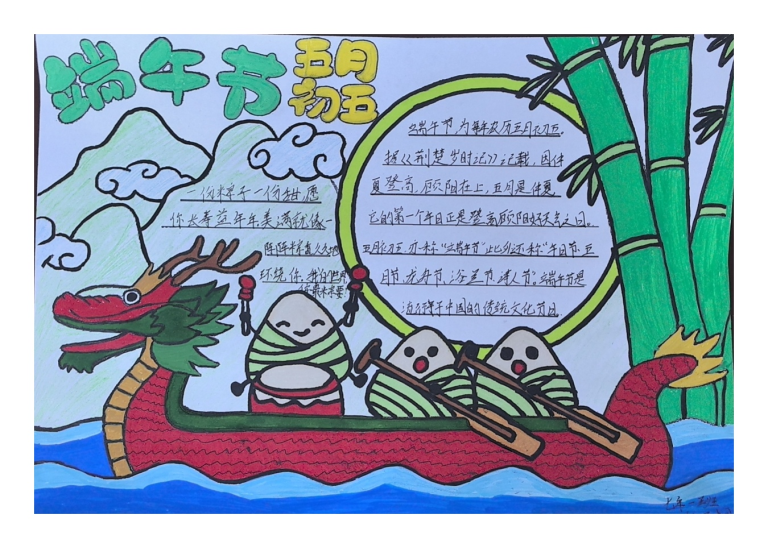 端午节
五月
初五
一份粽子一份甜愿
你长寿益年年美满就像一
环绕你,我的世界
你乘未来要
端午节,为每年农历五月初五。
据《荆楚岁时记》记载,因仲
夏登高,顺阳在上,五月是仲夏
它的第一个午日正是登高顺阳好天气之日。
五月初五,亦称“端午节”此外还称“午日节、五
月节、龙舟节、浴兰节、诗人节。端午节是
流行于中国的传统文化节日。